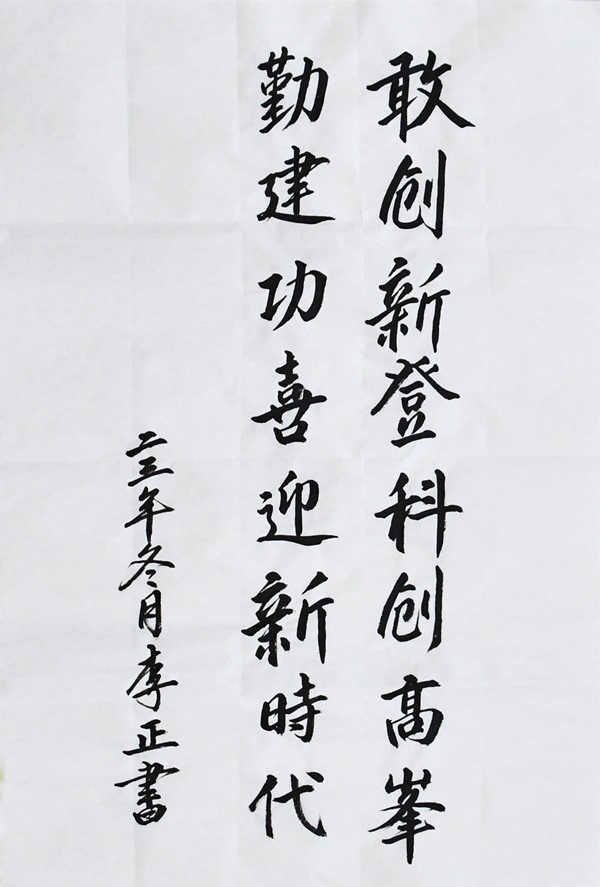 敢创新登科创高峯
勤建功喜迎新時代
二三年冬月李正書